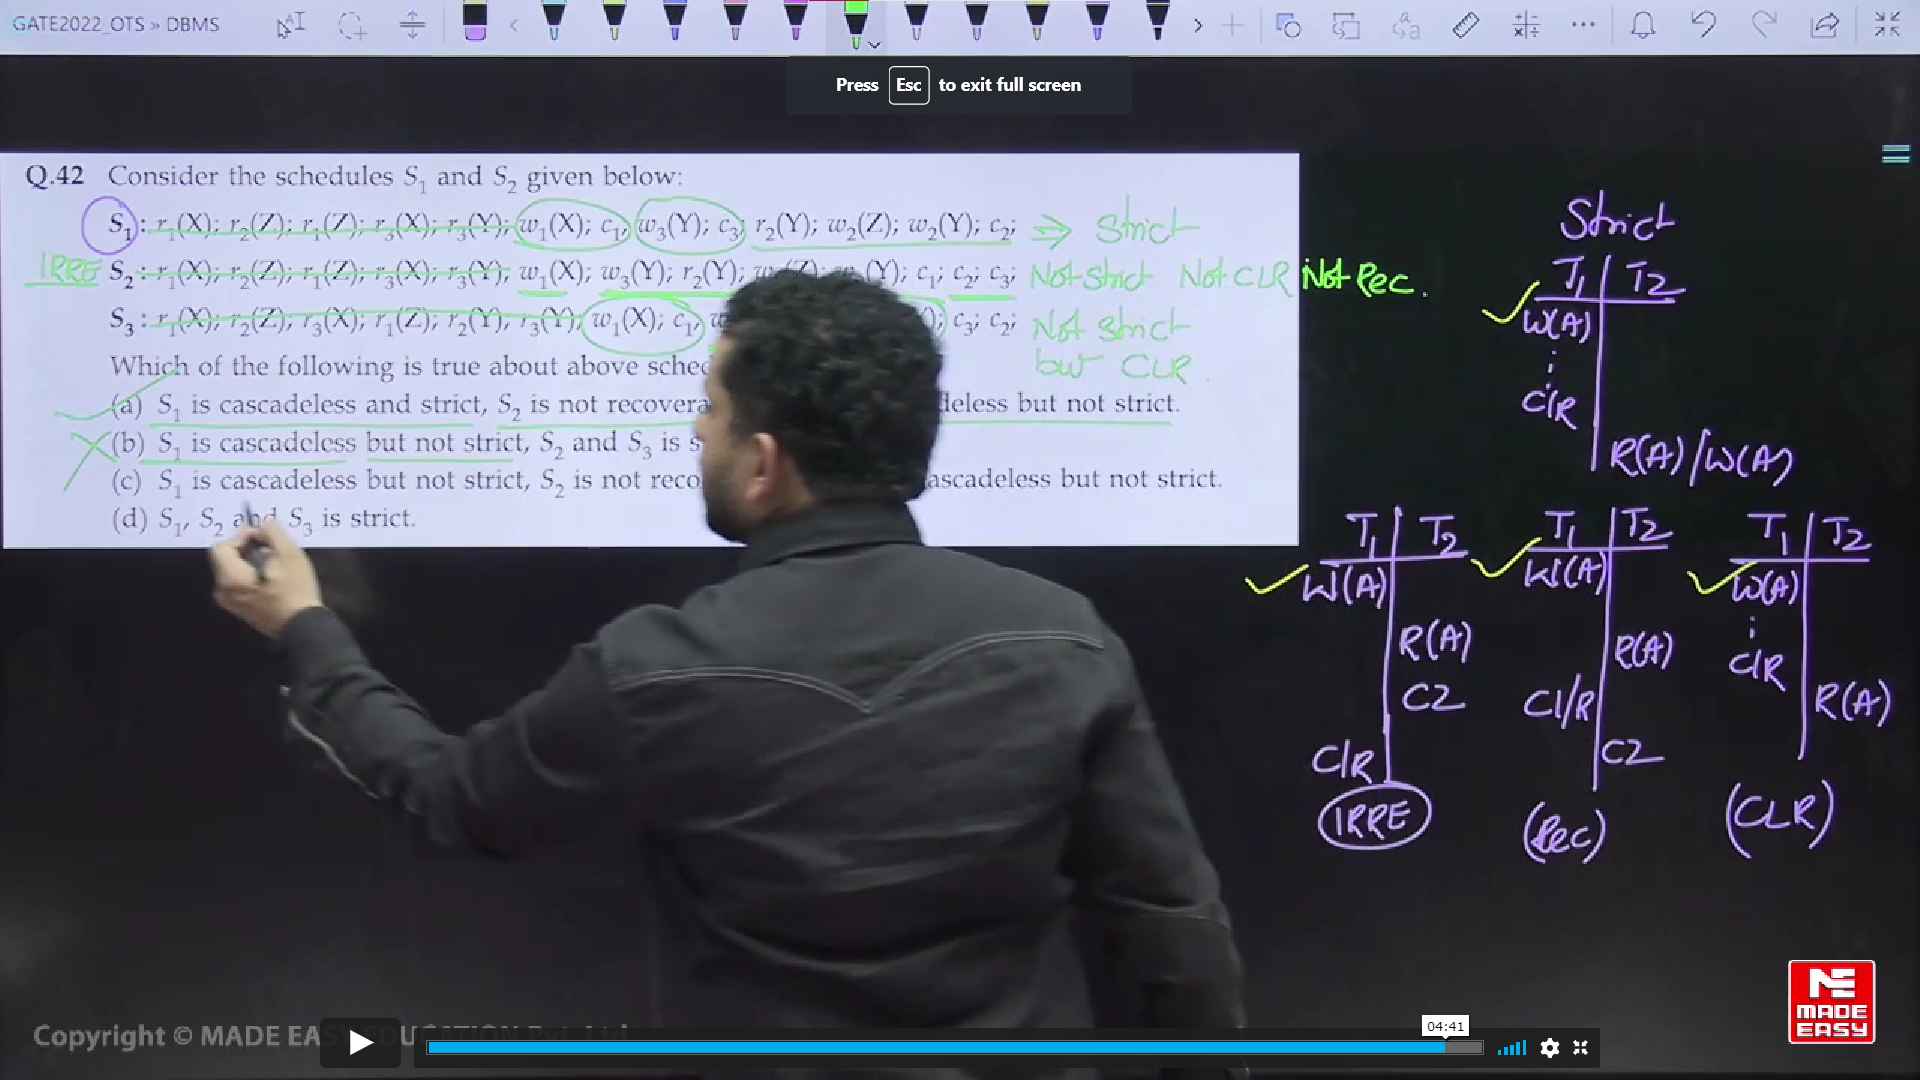 GATE2022_OTS » DBMS
Press Esc to exit full screen
Q.42 Consider the schedules S1 and S2 given below:
S1 : r1(X); r2(Z); r1(Z); r3(X); r3(Y); w1(X); c1, w3(Y); c3; r2(Y); w2(Z); w2(Y); c2; ⇒ Strict
IRRE S2 : r1(X); r2(Z); r1(Z); r3(X); r3(Y); w1(X); w3(Y); r2(Y); (Y); c1; c2; c3; Not Strict Not CLR Not Rec.
S3 : r1(X); r2(Z), r3(X); r1(Z); r2(Y), r3(Y); w1(X); c1, c3; c2; Not Strict
but CLR
Which of the following is true about above
(a) S1 is cascadeless and strict, S2 is not but not strict.
(b) S1 is cascadeless but not strict, S2 and S3 is
(c) S1 is cascadeless but not strict, S2 is not cascadeless but not strict.
(d) S1, S2 and S3 is strict.
Strict
T1 T2
W(A)
C/R
R(A)/W(A)
T1 T2
W(A)
R(A)
C2
C/R
IRRE
T1 T2
W(A)
R(A)
C1/R
C2
(Rec)
T1 T2
W(A)
C/R
R(A)
(CLR)
ME
MADE
EASY
Copyright © MADE EASY EDUCATION Pvt. Ltd
04:41